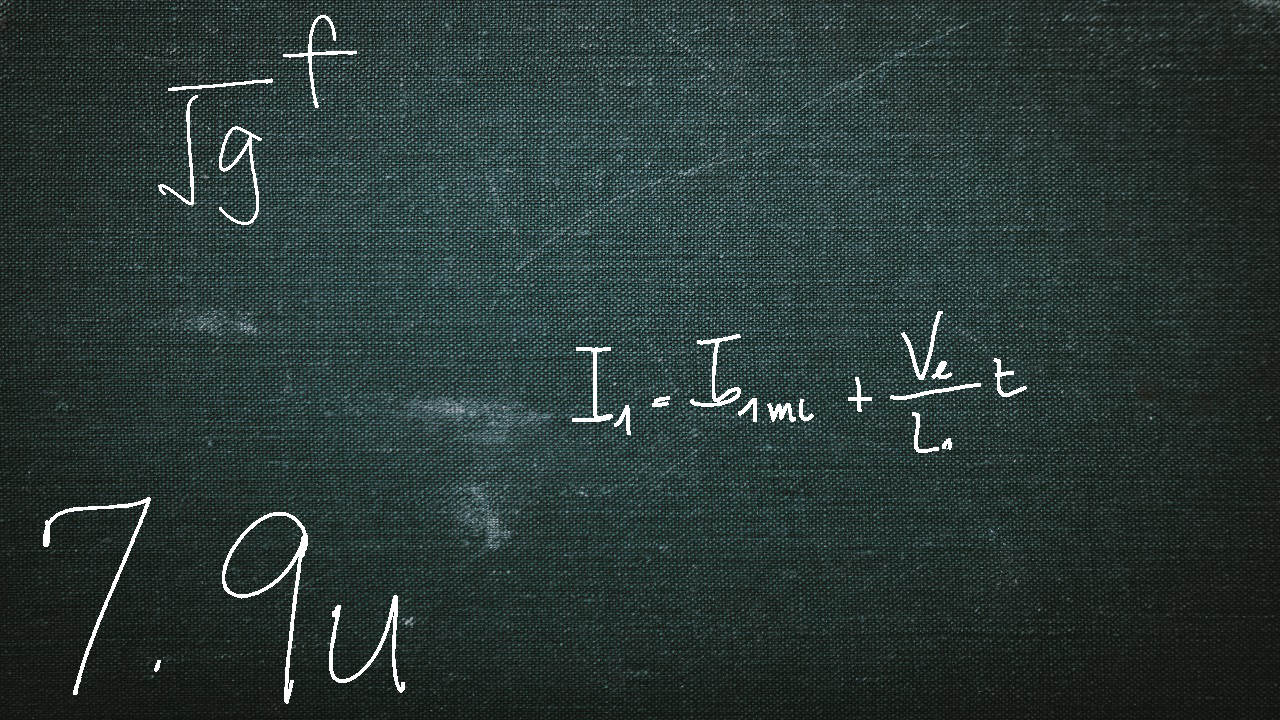 √g^f
I_1 = I_{b1mi} + \frac{V_e}{L_1} t
7.9u